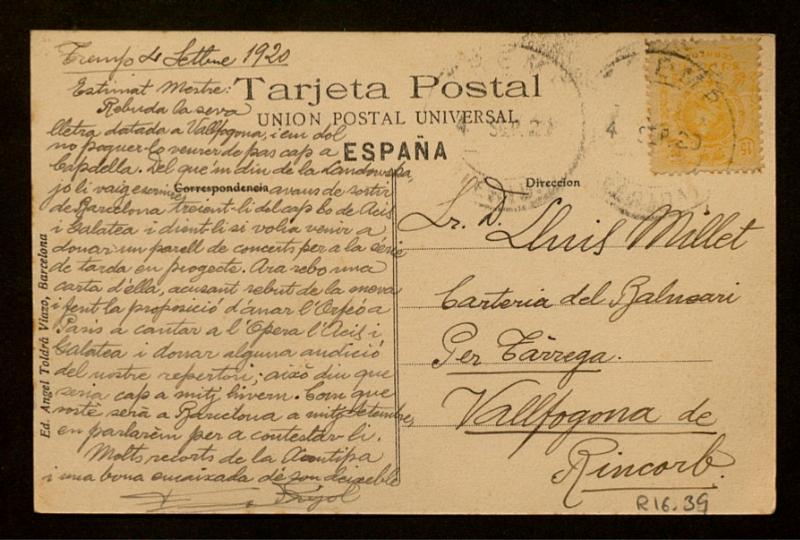 Tremp 4 Setbre 1920
Estimat Mestre:
Rebuda la seva
lletra datada a Vallfogona, i em dol
no poguer-lo veurer de pas cap a
Capdella. Del que'm diu de la Landowska,
jo li vaig escriure avans de sortir
de Barcelona treient-li del cap lo de Acis
i Galatea i dient-li si volia venir a
donar un parell de concerts per a la serie
de tarda en progecte. Ara rebo una
carta d'ella, acusant rebut de la meva
i fent la proposició d'anar l'Orfeó a
Paris a cantar a l'Opera l'Acis i
Galatea i donar alguna audició
del nostre repertori; això diu que
seria cap a mitj hivern. Com que
vostè serà a Barcelona a mitj Setembre,
en parlarèm per a contestar-li.
Molts recorts de la
i una bona encaixada de son deixeble
Pujol
Tarjeta Postal
UNION POSTAL UNIVERSAL
ESPAÑA
Correspondencia
Direccion
4 SEP. 20
4 SEP. 20
15
Sr. D. Lluis Millet
Carteria del Balneari
Per Tàrrega.
Vallfogona de
Rincorb.
R16.39
Ed. Angel Toldrá Viazo, Barcelona